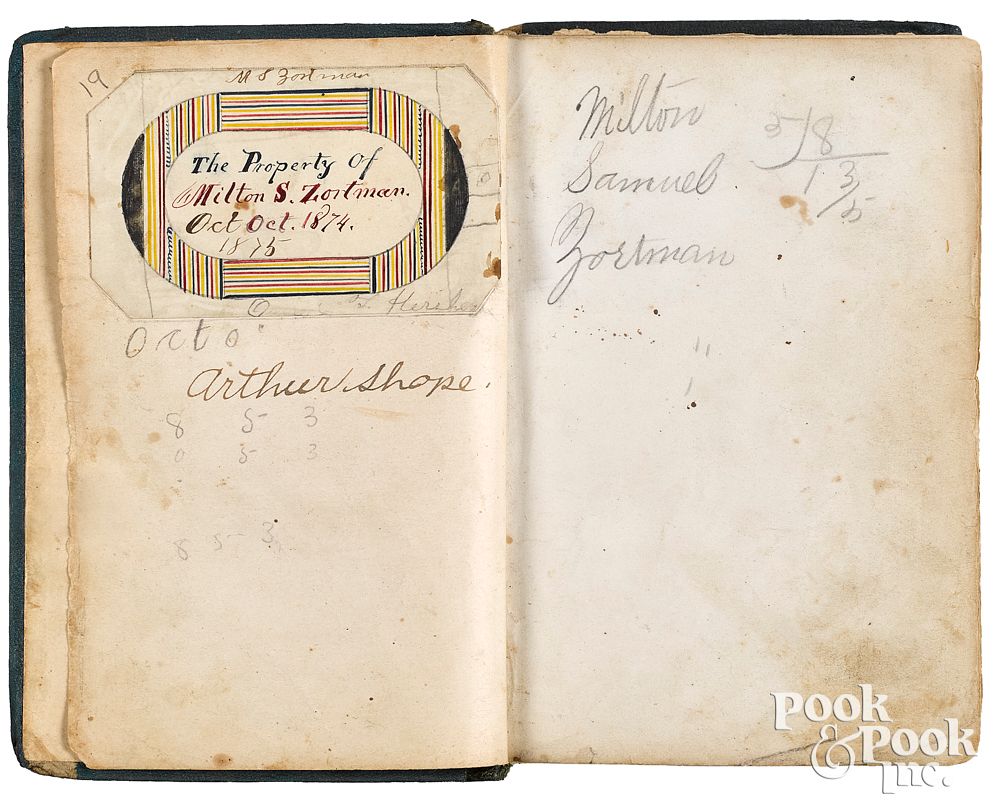 19
M S Zortman
The Property Of
Milton S. Zortman.
Oct Oct. 1874.
1875
Octo
Arthur Shope.
8 5 3
0 5 3
8 5 3
Milton
Samuel
Zortman
5)8
1 3/5
Pook
& Pook
Inc.